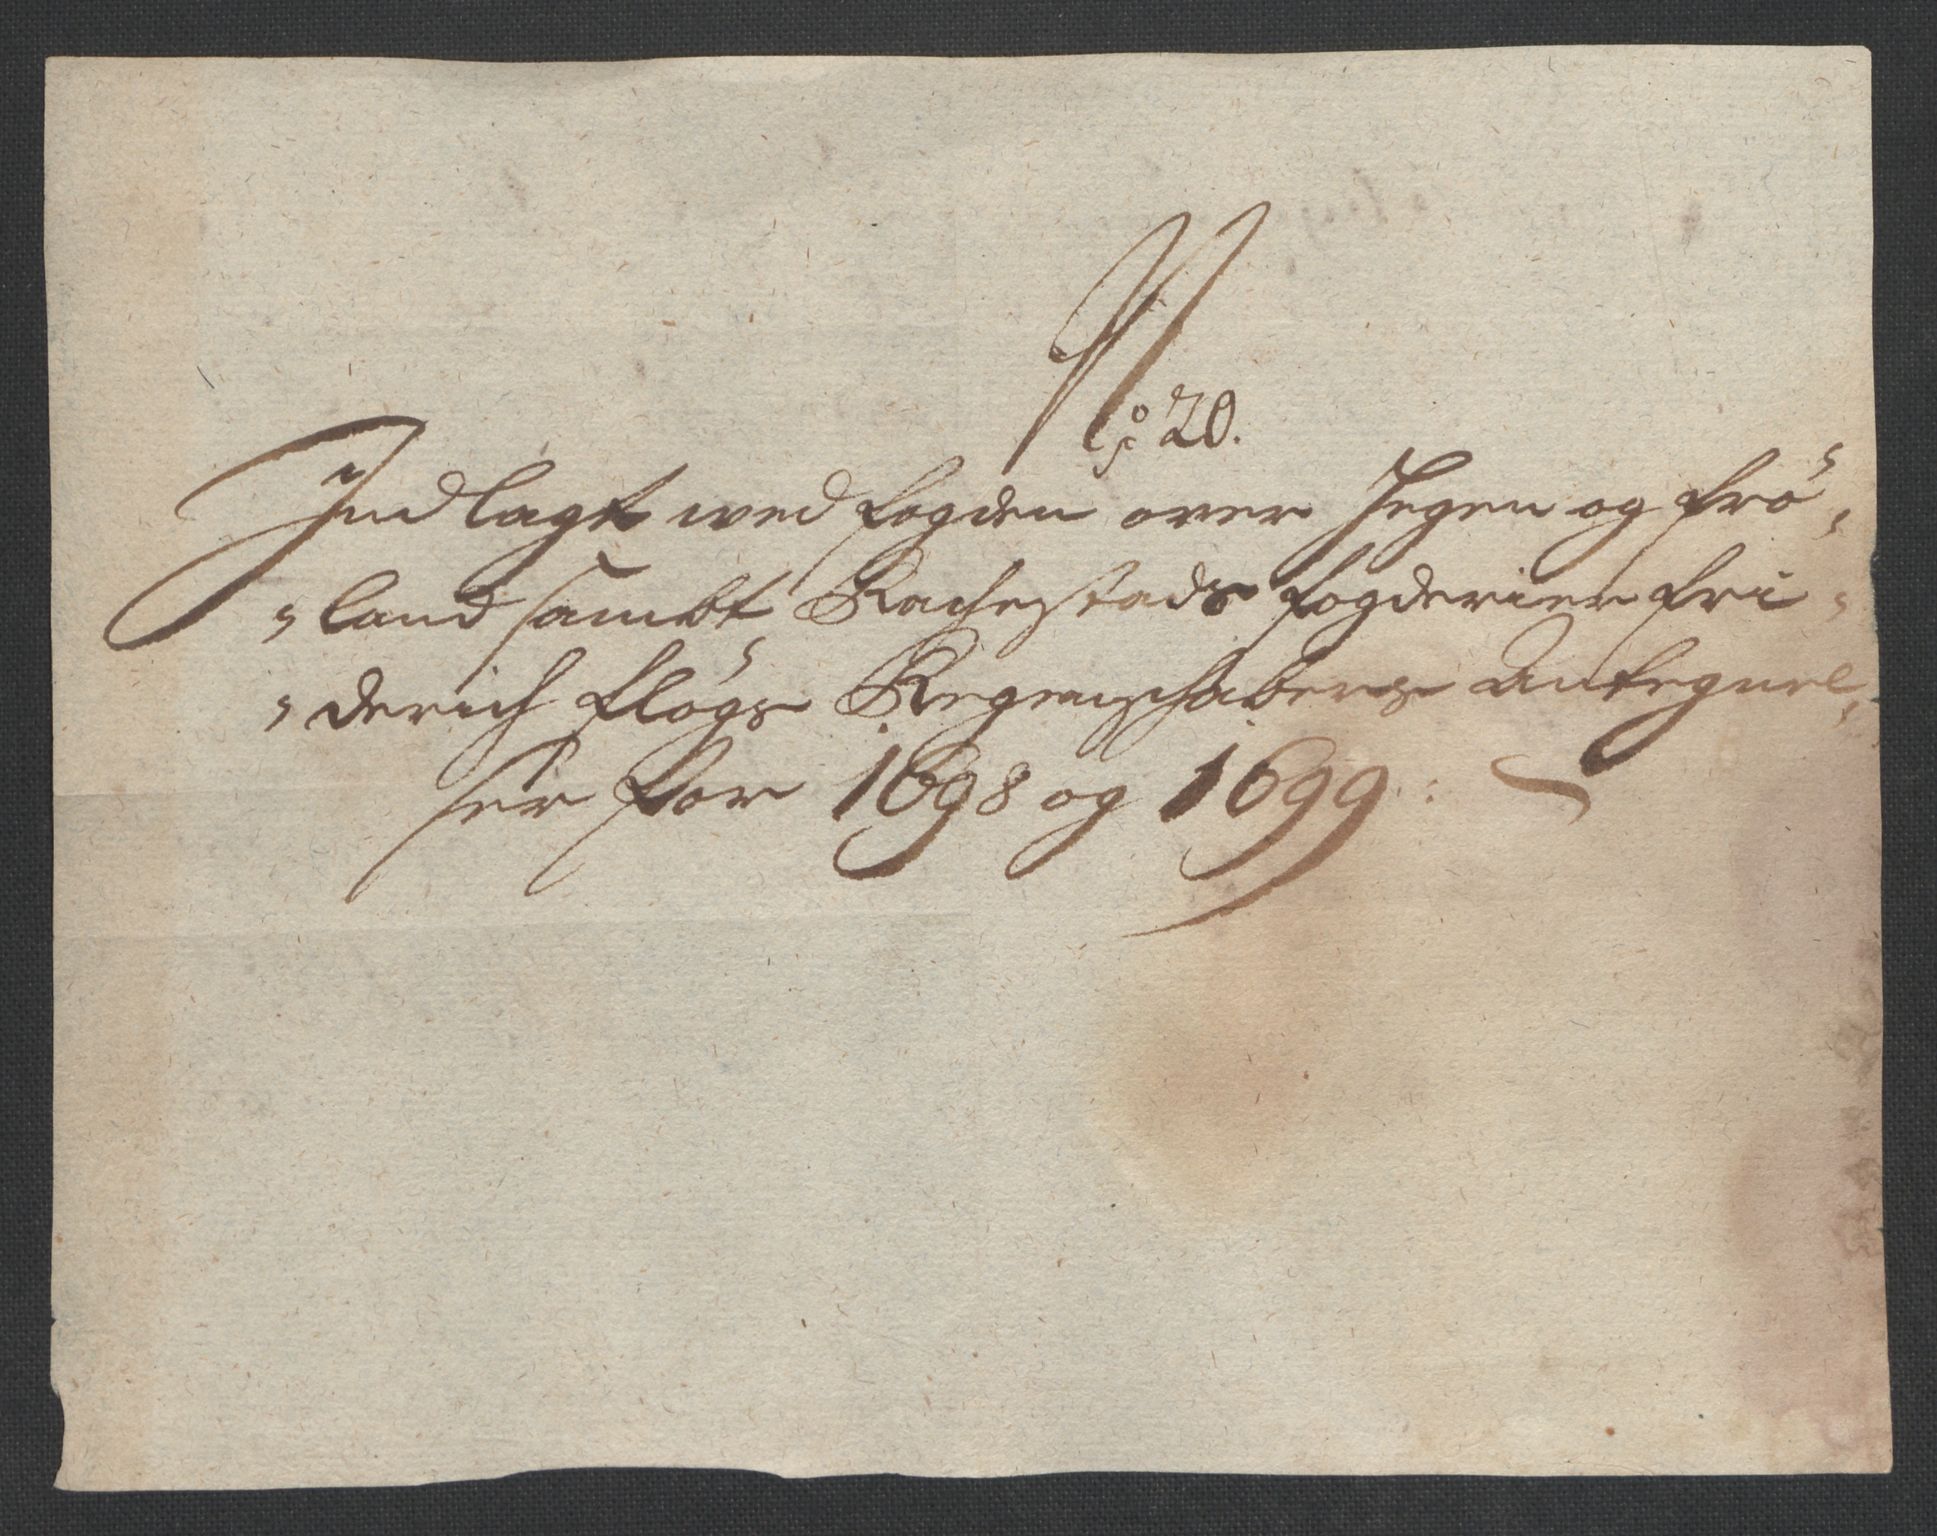 No: 20.
Indlagt wed fogden over Hegen og frö-
land sambt Rachestads fogderier fri-
derich flögs Regenschabers Antegnel-
ser for 1698 og 1699: